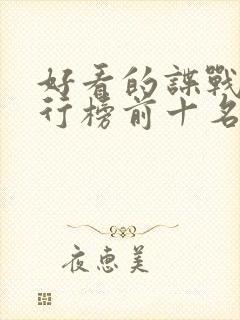 好看的諜戰
行榜前十名
夜惠美